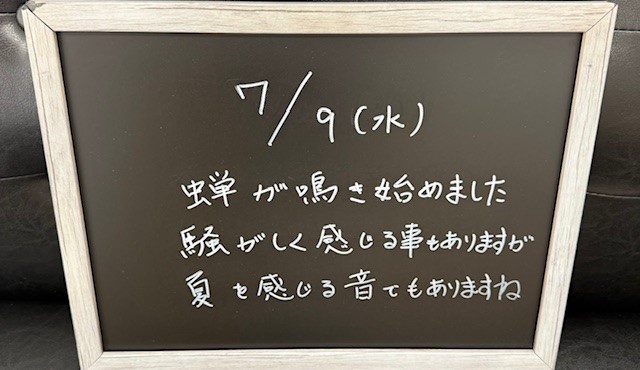 7/9(水)
蝉が鳴き始めました
騒がしく感じる事もありますが
夏を感じる音でもありますね